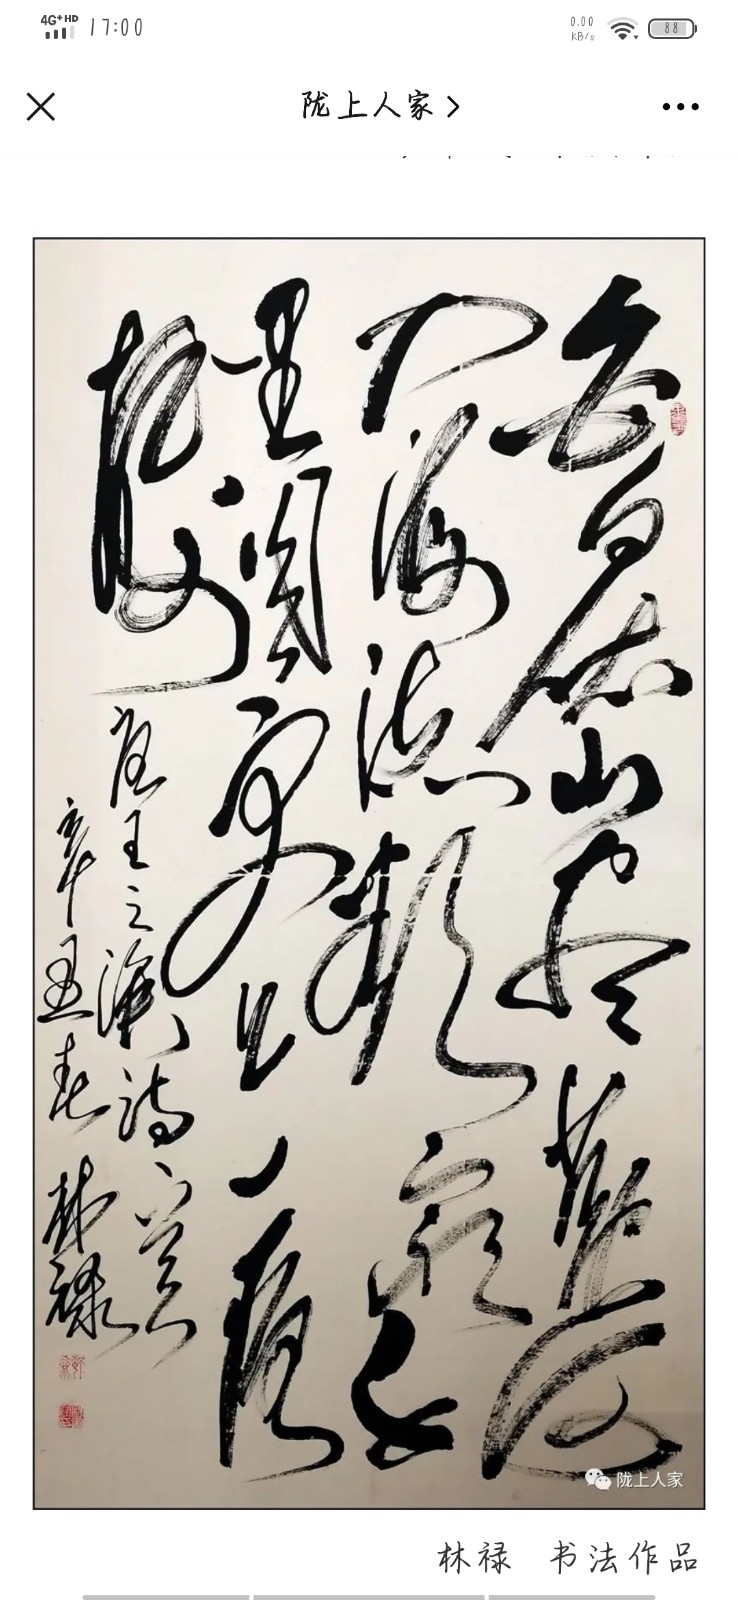 4G+HD 17:00
0.00
KB/s
88
陇上人家
白日依山尽黄河
入海流欲穷千
里目更上一层
楼
唐王之涣诗
辛丑春 林禄
陇上人家
林禄 书法作品